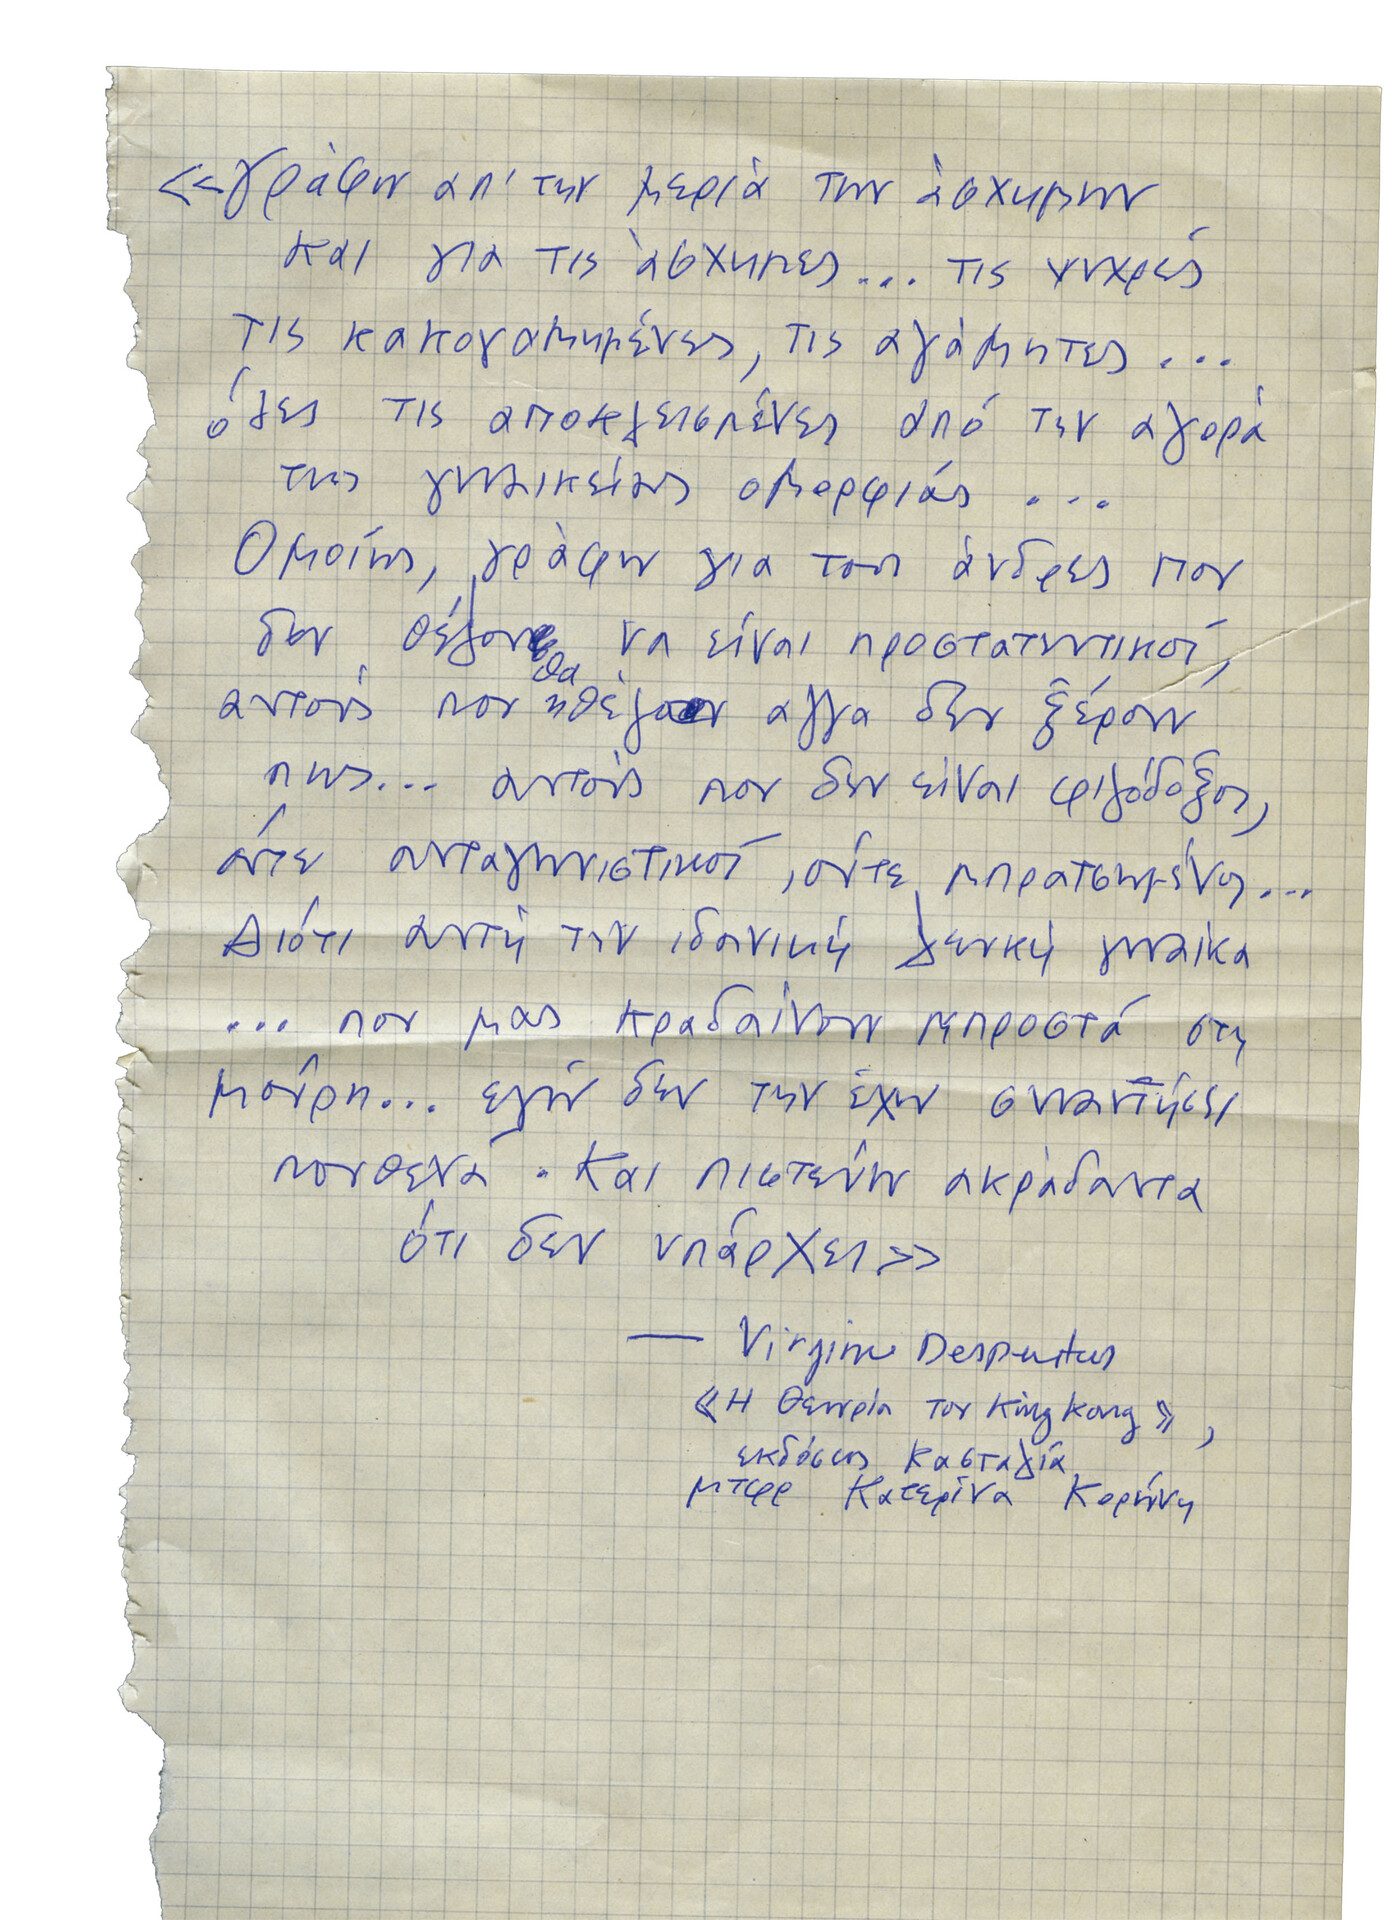 <<γράφω απ' την μεριά των άσχημων
και για τις άσχημες... τις ψυχρές
τις κακογαμημένες, τις αγάμητες...
όλες τις αποκλεισμένες από την αγορά
της γυναικείας ομορφιάς...
Ομοίως, γράφω για τους άνδρες που
δεν θέλουν να είναι προστατευτικοί,
αυτούς που θα ήθελαν αλλά δεν ξέρουν
πως... αυτούς που δεν είναι φιλόδοξοι,
ούτε ανταγωνιστικοί, ούτε μπρατσωμένοι...
Διότι αυτή την ιδανική λευκή γυναίκα
... που μας κραδαίνουν μπροστά στη
μούρη... εγώ δεν την έχω συναντήσει
πουθενά. Και πιστεύω ακράδαντα
ότι δεν υπάρχει>>
— Virginie Despentes
«Η Θεωρία του King Kong»,
εκδόσεις Κασταλία
μτφρ Κατερίνα Κορώνη